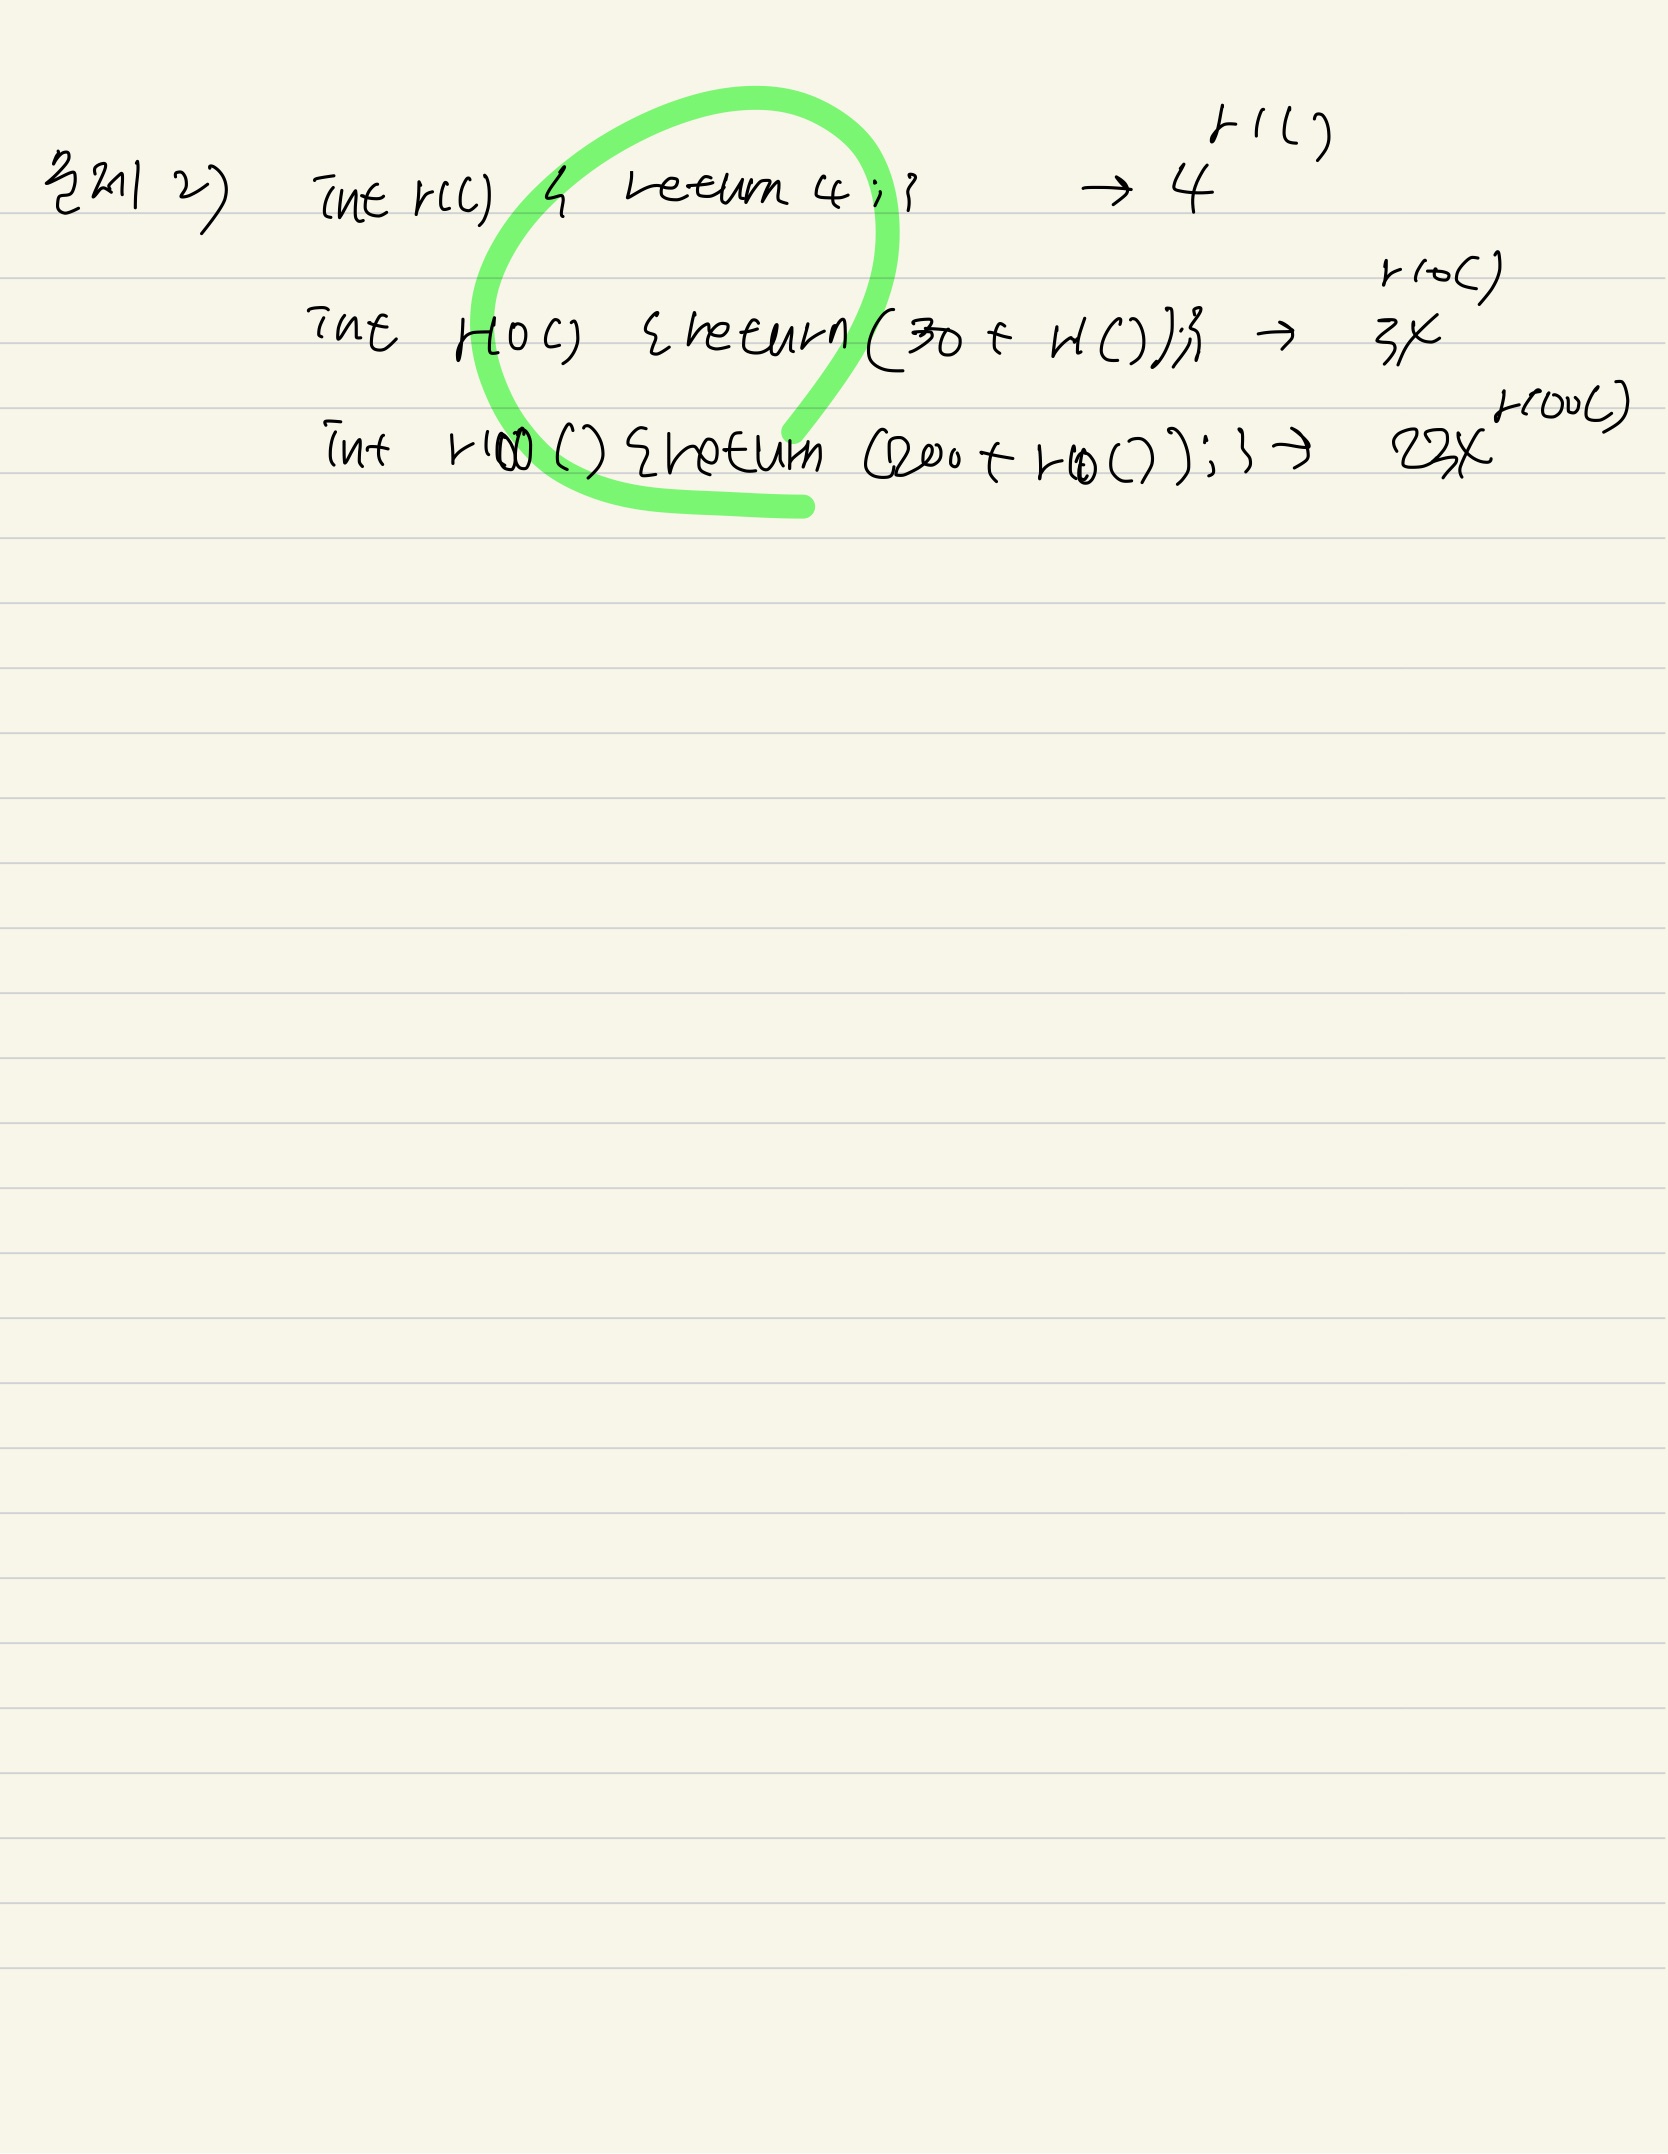 r1()
문제 2) int r1() { return 4;} → 4
r10()
int r10() {return(30 + r1());} → 34
r100()
int r100() {return (200 + r10());} → 234